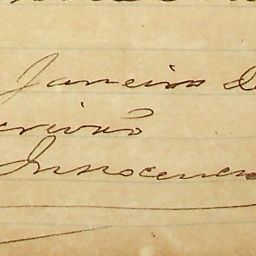 Janeiro de
crivão
Innocencio